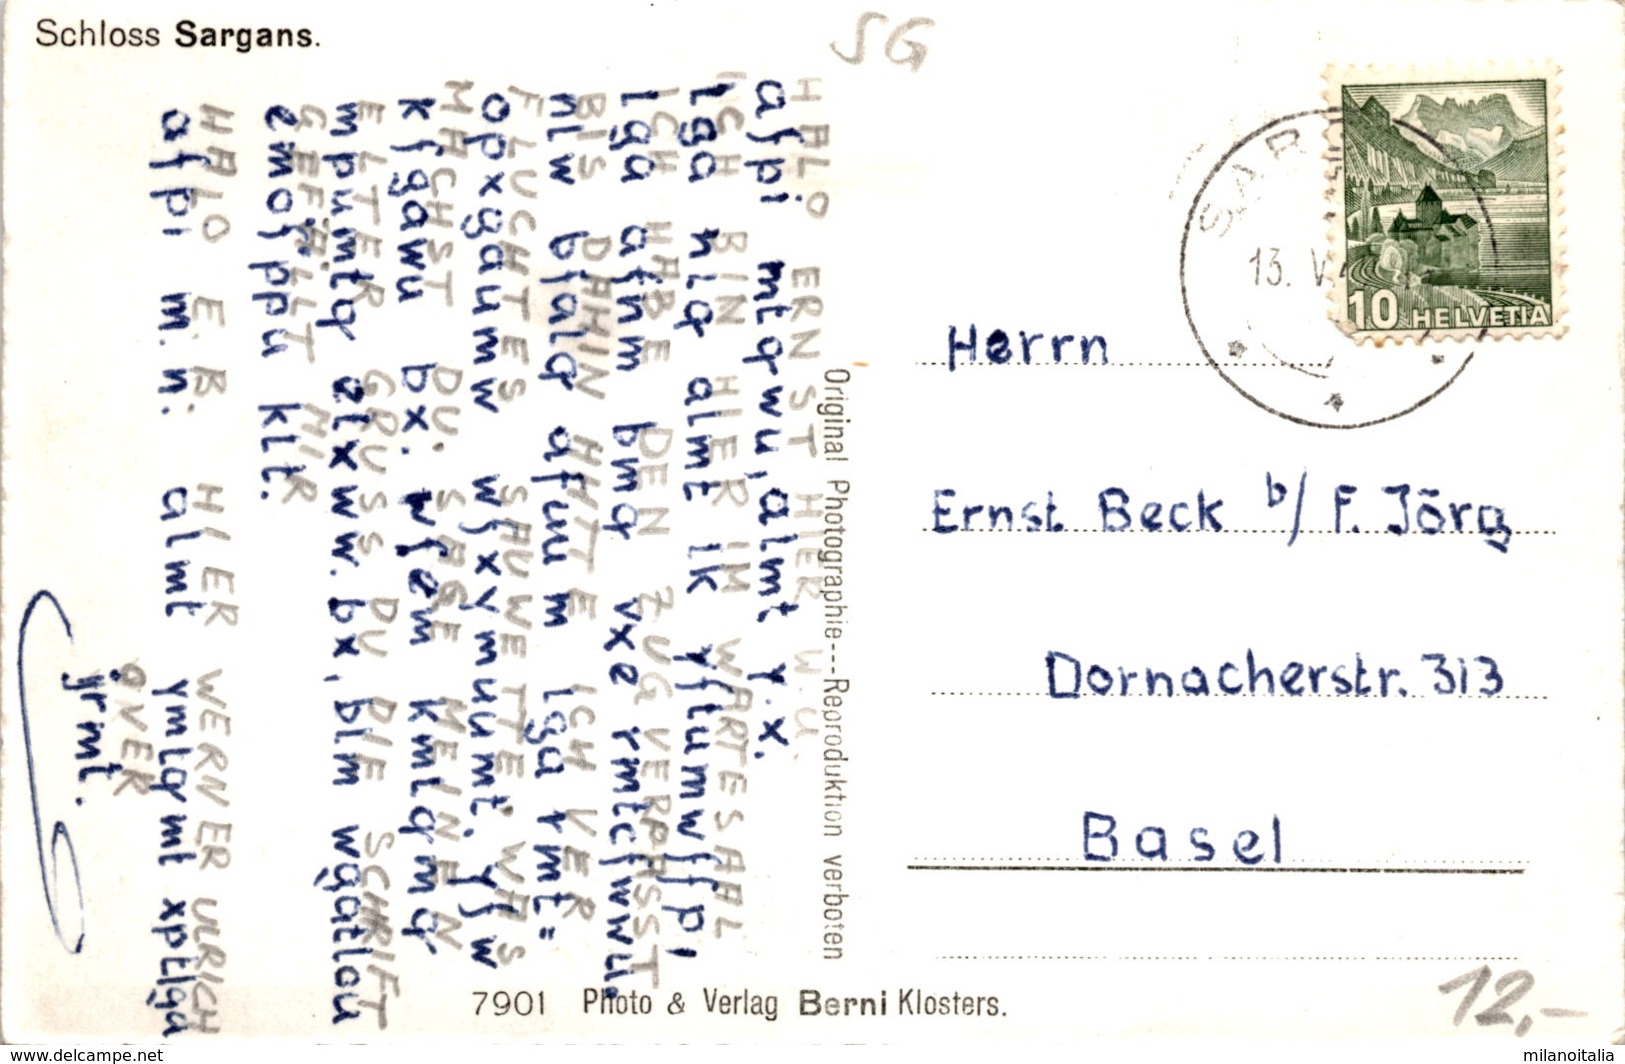 Schloss Sargans.
SG
HALO ERNST HIER W.U.
afpi mtqrwu, almt y.x.
ICH BIN HIER IM WARTESAAL
lga nlq almt lk yftumwffpi
ICH HABE DEN ZUG VERPASST
lga afnm bmq vxe rmtcfwwu.
BIS DAHIN HATTE ICH VER
nlw bfalq afuum lga rmt=
FLUCHTES SAUWETTER WAS
opxgaumw wfxymuumt. yfw
MACHST DU. SAGE MEINEN
kfgawu bx. wfem kmlqmq
ELTER GRUSS DU DIE SCHRIFT
mpumtq elxww. bx, blm wgatlou
GEFÄLLT MIR
emofppu klt.
HALO E.B. HIER WERNER ULRICH
afpi m.n. almt ymtqmt xptlga
QVER
jrmt.
Original Photographie---Reproduktion verboten
7901 Photo & Verlag Berni Klosters.
10 HELVETIA
SAR
13. V.
Herrn
Ernst Beck b/ F. Jörg
Dornacherstr. 313
Basel
12,-
www.delcampe.net
milanoitalia